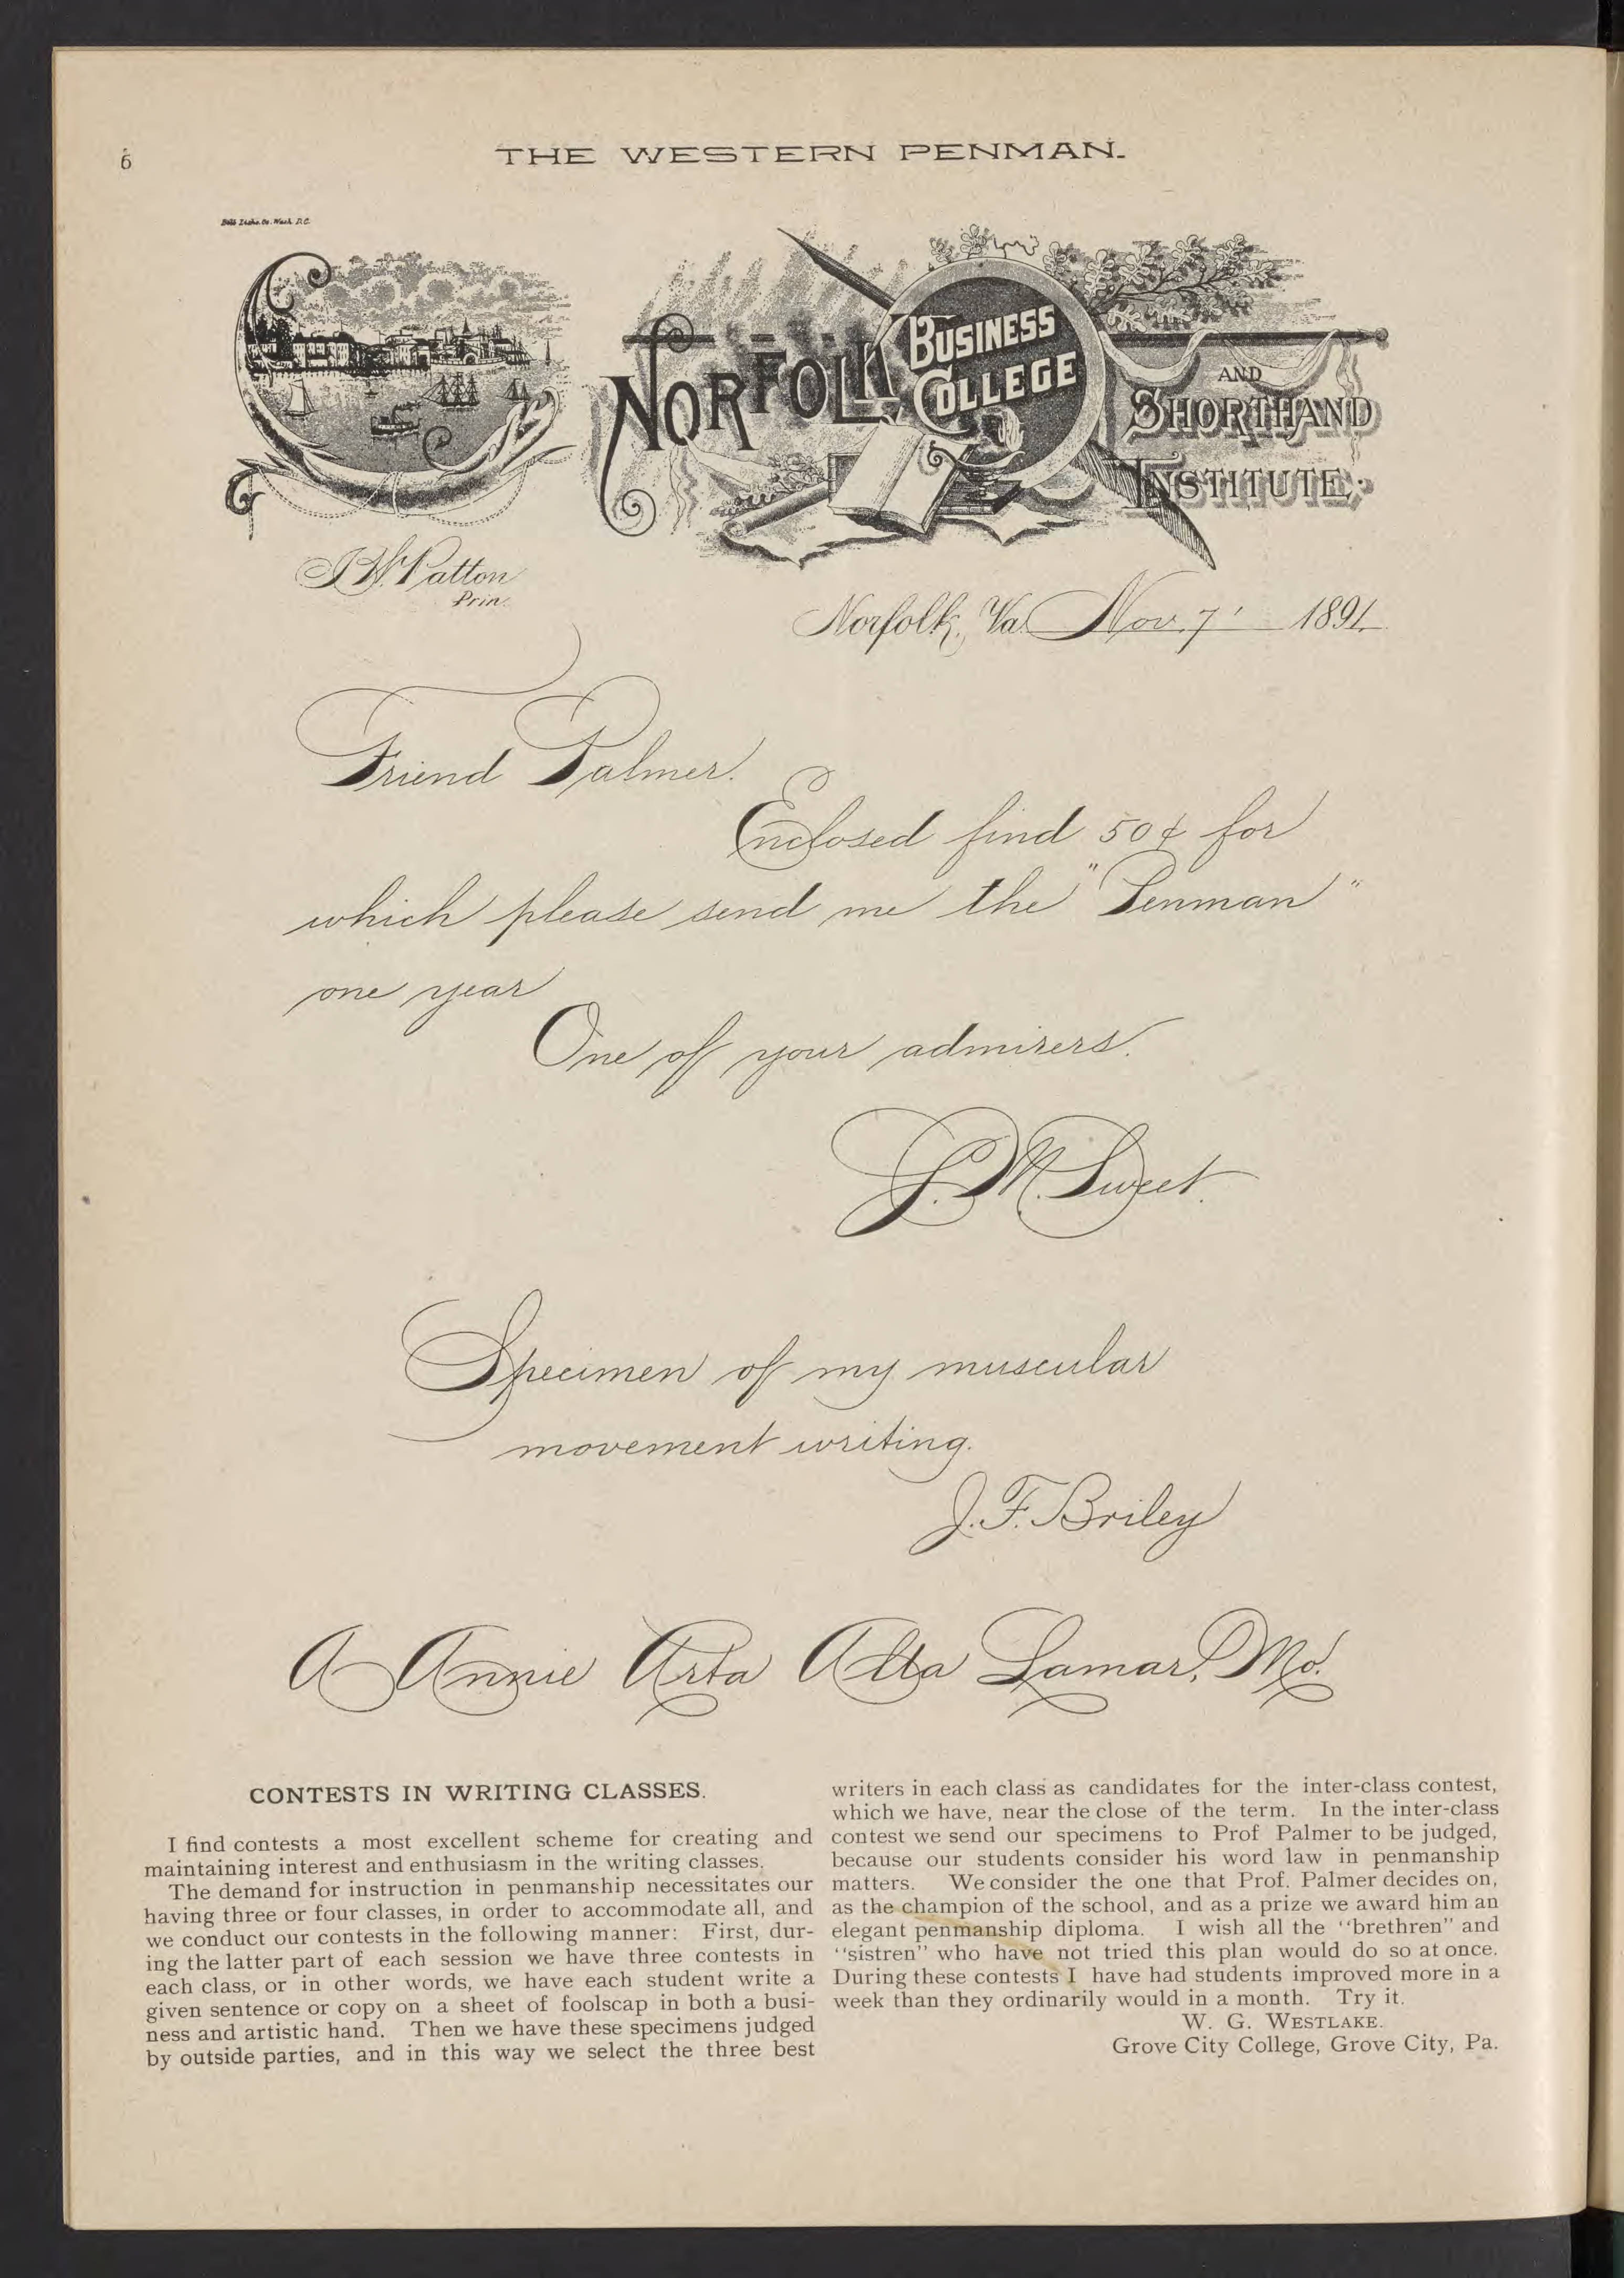 6
THE WESTERN PENMAN.
NORFOLK BUSINESS COLLEGE AND SHORTHAND INSTITUTE,
Patton
Prin.
Norfolk, Va. Nov. 7' 1891.
Friend Palmer.
Enclosed find 50¢ for
which please send me the "Penman"
one year
One of your admirers.
M. Sweet.
Specimen of my muscular
movement writing.
J. F. Briley
A Annie Arta Alta Lamar, Mo.
CONTESTS IN WRITING CLASSES.
I find contests a most excellent scheme for creating and
maintaining interest and enthusiasm in the writing classes.
The demand for instruction in penmanship necessitates our
having three or four classes, in order to accommodate all, and
we conduct our contests in the following manner: First, dur-
ing the latter part of each session we have three contests in
each class, or in other words, we have each student write a
given sentence or copy on a sheet of foolscap in both a busi-
ness and artistic hand. Then we have these specimens judged
by outside parties, and in this way we select the three best
writers in each class as candidates for the inter-class contest,
which we have, near the close of the term. In the inter-class
contest we send our specimens to Prof Palmer to be judged,
because our students consider his word law in penmanship
matters. We consider the one that Prof. Palmer decides on,
as the champion of the school, and as a prize we award him an
elegant penmanship diploma. I wish all the "brethren" and
"sistren" who have not tried this plan would do so at once.
During these contests I have had students improved more in a
week than they ordinarily would in a month. Try it.
W. G. WESTLAKE.
Grove City College, Grove City, Pa.